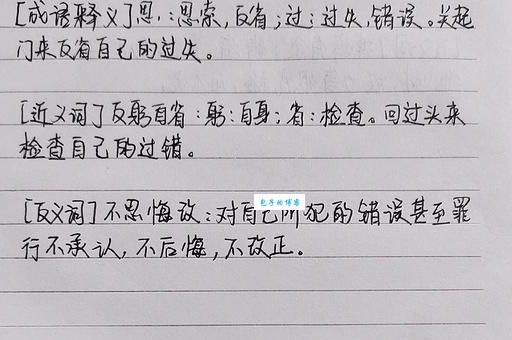 [成语释义]思:思索,反省;过:过失,错误。关起
门来反省自己的过失。
[近义词]反躬自省:躬:自身;省:检查。回过头来
检查自己的过错。
[反义词]不思悔改:对自己所犯的错误甚至罪
行不承认,不后悔,不改正。
包子的博客